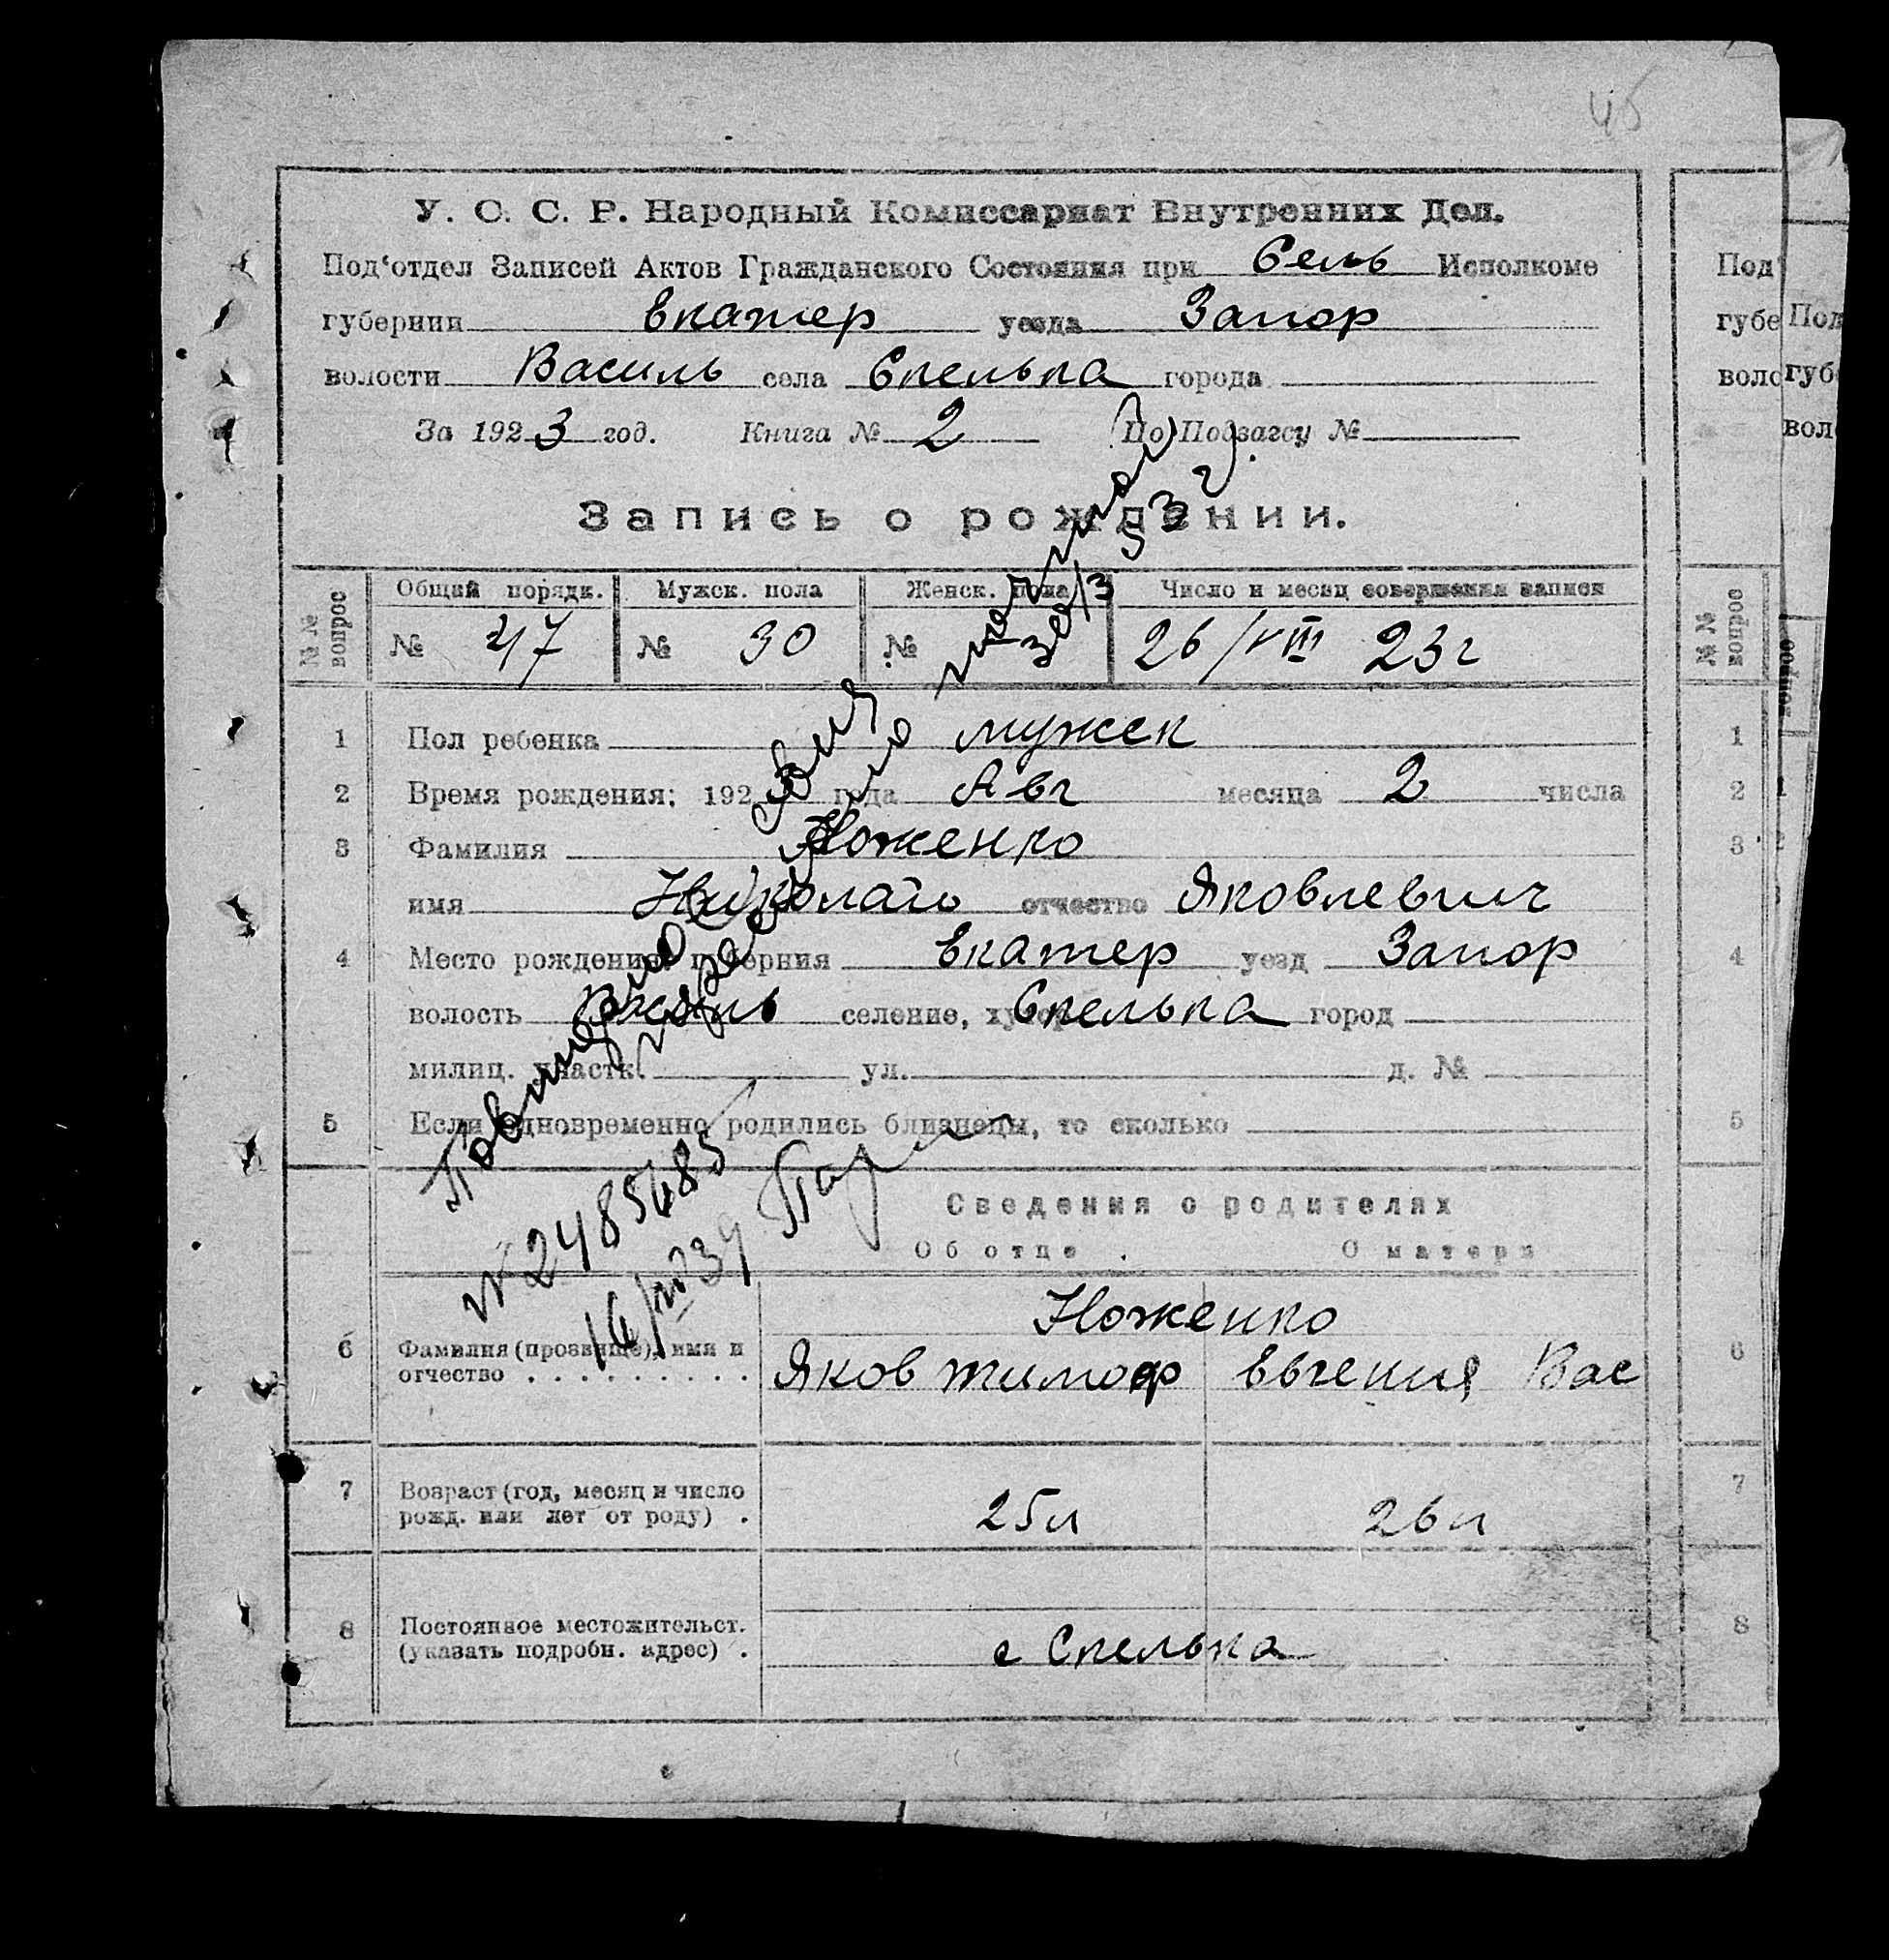 45
У. С. С. Р. Народный Комиссариат Внутренних Дел.
Под‘отдел Записей Актов Гражданского Состояния при Сель Исполкоме
губернии Екатер уезда Запор
волости Василь села Скелька города
За 1923 год. Книга № 2 (По Подзагсу №
Запись о рождении.
№ № вопрос Общий порядк. Мужск. пола Женск. пола Число и месяц совершения записи
№ 47 № 30 № 26/VIII 23г
1 Пол ребенка мужск
2 Время рождения: 1923 года Авг месяца 2 числа
3 Фамилия Ноженко
имя Николай отчество Яковлевич
4 Место рождения: губерния Екатер уезд Запор
волость Василь селение, хутор Скелька город
милиц. участк. ул. д. №
5 Если одновременно родились близнецы, то сколько
Повторно
30/3 53 г.
№ 2485485
Сведения о родителях
Об отце . О матери
Ноженко
6 Фамилия (прозвище), имя и
отчество . . . . . . . . . Яков Тимоф Евгения Вас
7 Возраст (год, месяц и число
рожд. или лет от роду) . 25л 26л
8 Постоянное местожительст.
(указать подробн. адрес) . с Скелька
Под‘
губе
воло
№ № вопрос
1
2
3
4
5
6
7
8
Под
губе
воло